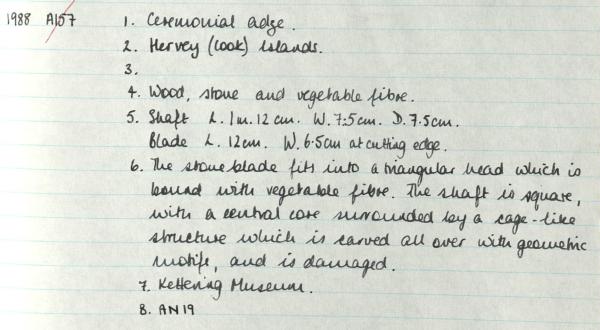 1988 A157 1. Ceremonial adze.
2. Hervey (Cook) Islands.
3.
4. Wood, stone and vegetable fibre.
5. Shaft L. 1m. 12 cm. W. 7.5cm. D. 7.5cm.
Blade L. 12cm. W. 6.5cm at cutting edge.
6. The stone blade fits into a triangular head which is
bound with vegetable fibre. The shaft is square,
with a central core surrounded by a cage-like
structure which is carved all over with geometric
motifs, and is damaged.
7. Kettering Museum.
8. AN19